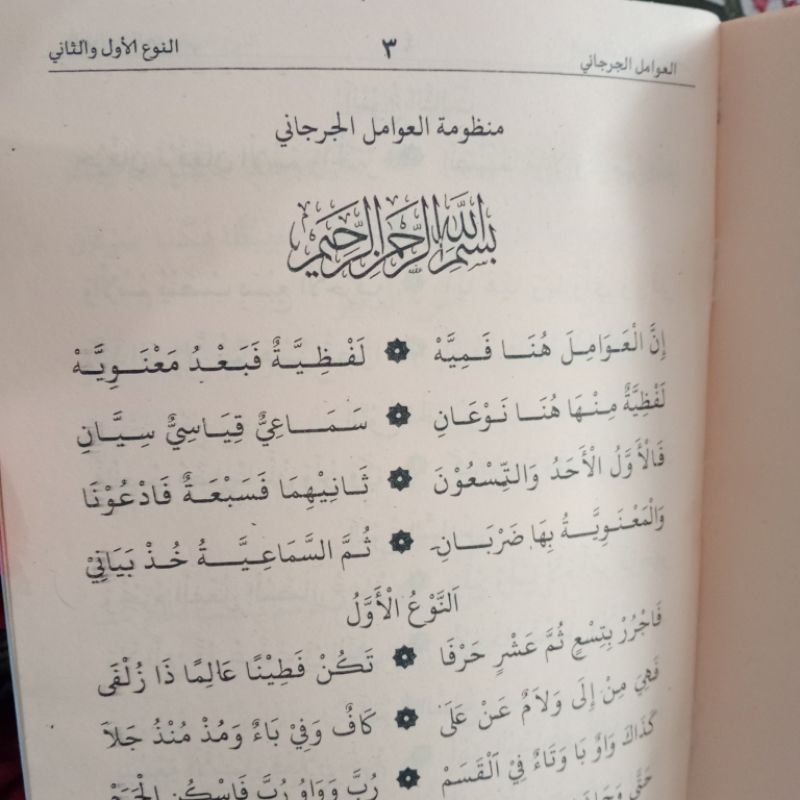 العوامل الجرجاني ٣ النوع الأول والثاني
منظومة العوامل الجرجاني
بسم الله الرحمن الرحيم
إِنَّ الْعَوَامِلَ هُنَا فَمِيَّهْ ۞ لَفْظِيَّةٌ فَبَعْدُ مَعْنَوِيَّهْ
لَفْظِيَّةٌ مِنْهَا هُنَا نَوْعَانِ ۞ سَمَاعِيٌّ قِيَاسِيٌّ سِيَّانِ
فَالْأَوَّلُ الْأَحَدُ وَالتِّسْعُوْنَ ۞ ثَانِيْهِمَا فَسَبْعَةٌ فَادْعُوْنَا
وَالْمَعْنَوِيَّةُ بِهَا ضَرْبَانِ ۞ ثُمَّ السَّمَاعِيَّةُ خُذْ بَيَانِيْ
اَلنَّوْعُ الْأَوَّلُ
فَاجْرُرْ بِتِسْعٍ ثُمَّ عَشْرٍ حَرْفَا ۞ تَكُنْ فَطِيْنًا عَالِمًا ذَا زُلْفَى
فَهِيَ مِنْ إِلَى وَلَامٌ عَنْ عَلَى ۞ كَافٌ وَفِيْ بَاءٌ وَمُذْ مُنْذُ جَلَا
كَذَاكَ وَاوٌ بَا وَتَاءٌ فِي الْقَسَمْ ۞ رُبَّ وَوَاوُ رُبَّ فَاسْكُنِ الْحَرَمْ
حَتَّى